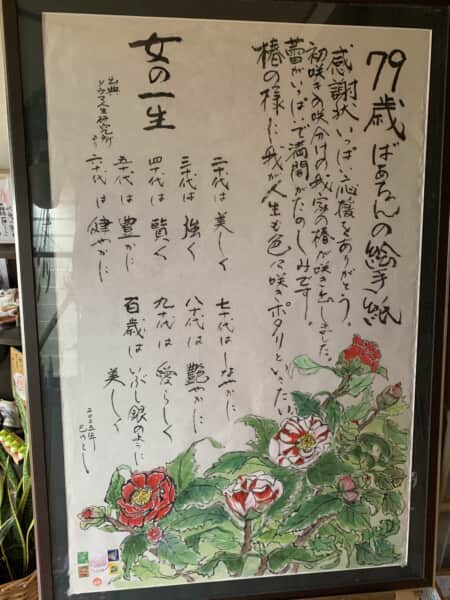 79歳ばあちゃんの絵手紙
感謝状いっぱい応援をありがとう。
初咲きの咲分けの我家の椿が咲き出しました。
蕾がいっぱいで満開がたのしみです。
椿の様に我が人生も色々咲きポタリといったい
女の一生
出典
ドウマ人生研究所
より
二十代は美しく
三十代は強く
四十代は賢く
五十代は豊かに
六十代は健やかに
七十代はしなやかに
八十代は艶やかに
九十代は愛らしく
百歳はいぶし銀のように
美しく
2025年
巳のとし